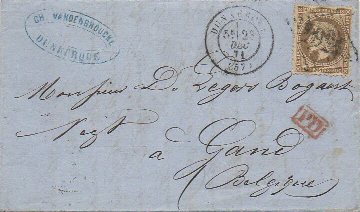 CH. VANDENBROUCKE
DUNKERQUE
DUNKERQUE
DEC
71
(57)
Monsieur De Legers Bogaert
Negt
à Gand
Belgique
PD